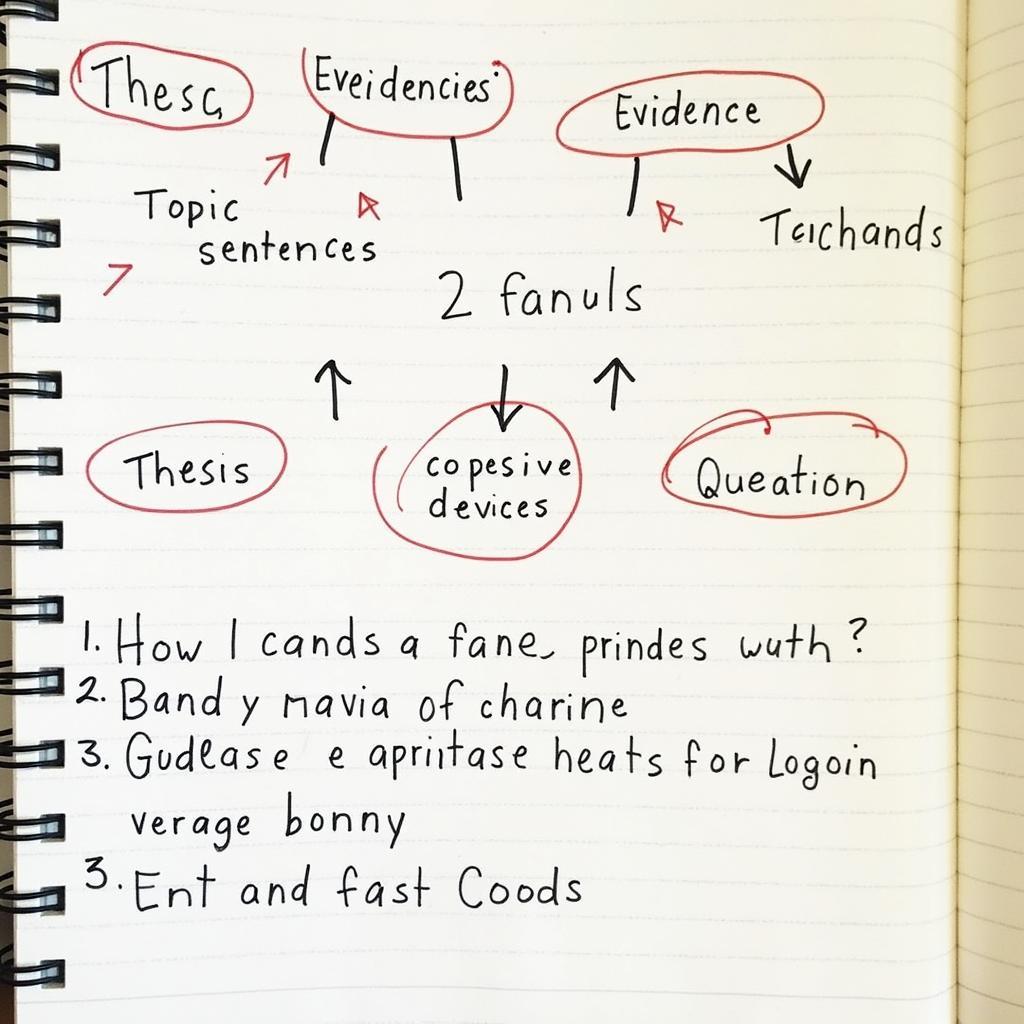 Thesa
Eveidencies
Evidence
Topic
sentences
Tcichands
2 fanuls
Thesis
copesive
devices
Queation
1. How I cands a fane prindes wuth?
2. Band y mavia of charine
3. Gudlease e apriitase heats for Logoin
verage bonny
3. Ent and fast Coods